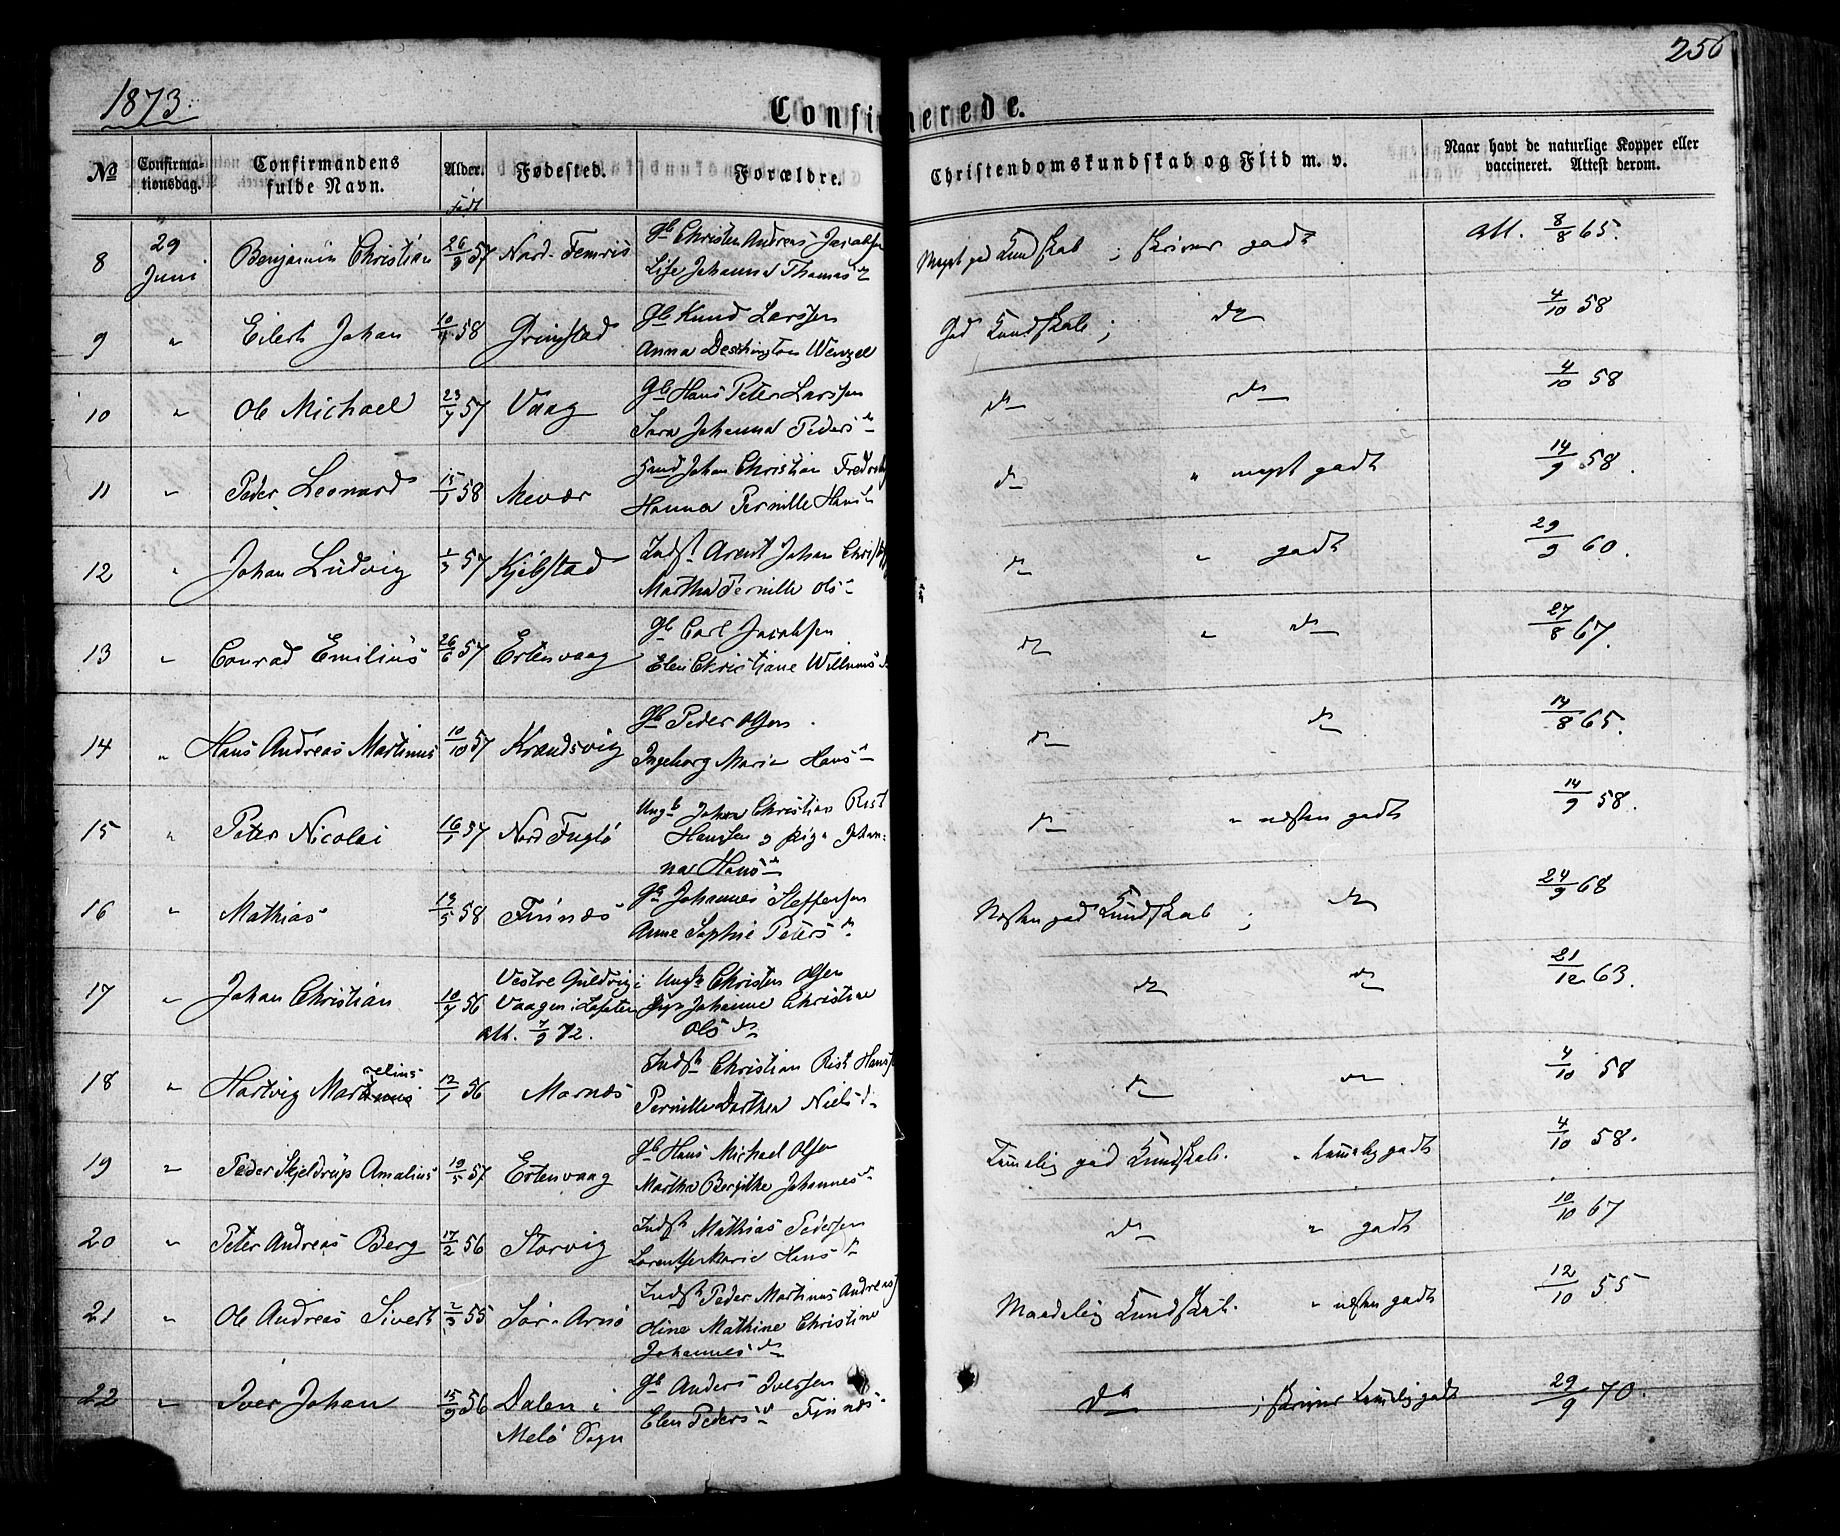 1873.
250
Confirmerede.
No
Confirma-
tionsdag.
Confirmandens
fulde Navn.
Alder.
Født
Fødested.
Forældre.
Christendomskundskab og Flid m. v.
Naar havt de naturlige Kopper eller
vaccineret. Attest derom.
8 29 Juni Benjamin Christian 26/9 57 Nord-Femris Gb Christen Andreas Jacobsen
Johanna Thomasd
Meget god Kundskab; skriver godt att. 8/8 65.
9 " Eilert Johan 58 Grimstad Gb Knud Larsen
Anna Deshington Wenzel
God Kundskab; do 4/10 58
10 " Ole Michael 57 Vaag Gb Hans Peter Larsen
Sara Johanna Pedersd
do do 4/10 58
11 " Peder Leonard 58 Mevær Johan Christian
Hanna Pernille Hansd
do " meget godt 14/9 58.
12 " Johan Ludvig 57 Kjelstad Indst Arent Johan
Martha Pernille Olsd
do " godt 29/9 60.
13 " Conrad Emilius 26/6 57 Ertenvaag Gb Carl Jacobsen
Elen Christiane Willumsd
do " do 27/8 67.
14 " Hans Andreas Martinus 10/10 57 Krandsvig Gb Peder Olsen
Ingeborg Marie Hansd
do do 14/8 65.
15 " Peter Nicolai 57 Nord Fuglø Ungk Johan Christian Rist
Hansen og pige Johan-
na Hansd
do " næsten godt 14/9 58.
16 " Mathias 13/5 58 Finnæs Gb Johannes Steffensen
Anne Sophie Petersd
Næsten god Kundskab; do 24/9 68
17 " Johan Christian 56 Vestre Guldvig i
Vaagen i Lofoten
att. 7/9 72.
Ungk Christen Olsen
Johanne Christine
Olsd
do do 21/12 63.
18 " Hartvig Martelius 56 Marnæs Indst Christian Rist Hans
Pernille Dorthea Nielsd
do do 4/10 58
19 " Peder Skjeldrup Amalius 19/5 57 Ertenvaag Gb Hans Michael Olsen
Martha Bergithe Johannesd
Temelig god Kundskab. " temelig godt 4/10 58.
20 " Peter Andreas Berg 17/2 56 Storvig Indst Mathias Pedersen
Lorentse Marie Hansd
do " godt 10/10 67
21 " Ole Andreas Sivert 2/3 55 Sør-Arnø Indst Peder Martinus Andreas
Oline Mathine Christine
Johannesd
Maadelig Kundskab. " næsten godt 12/10 55
22 " Iver Johan 15/9 56 Dalen i
Melø Sogn
Gb Anders Iversen
Elen Pedersd Finnæs
do ; skriver temelig godt 29/9 70.